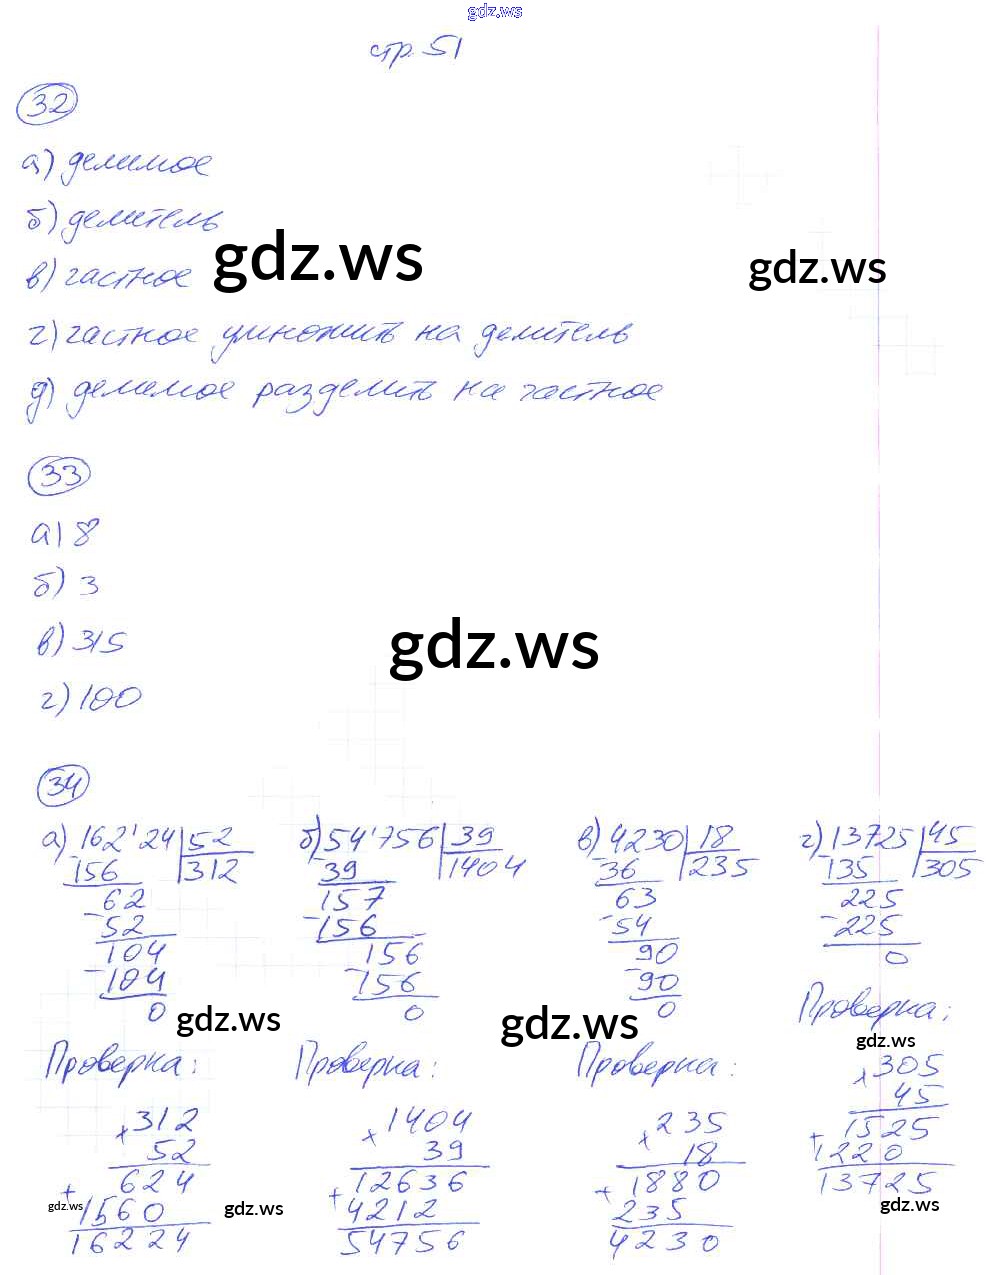 gdz.ws
стр. 51
32
а) делимое
б) делитель
в) частное
gdz.ws
gdz.ws
г) частное умножить на делитель
д) делимое разделить на частное
33
а) 8
б) 3
в) 315
gdz.ws
г) 100
34
а) 162'24 52
- 156 312
62
- 52
104
- 104
0
б) 54'756 39
- 39 1404
157
- 156
156
- 156
0
в) 4230 18
- 36 235
63
- 54
90
- 90
0
г) 13725 45
- 135 305
225
- 225
0
gdz.ws
gdz.ws
gdz.ws
Проверка:
× 312
52
624
+ 1560
16224
Проверка:
× 1404
39
12636
+ 4212
54756
Проверка:
× 235
18
1880
+ 235
4230
Проверка:
× 305
45
1525
+ 1220
13725
gdz.ws
gdz.ws
gdz.ws